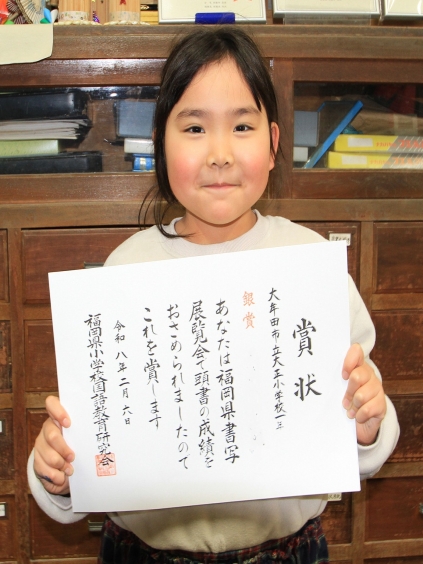 賞状
大牟田市立大正小学校三
銀賞
あなたは福岡県書写
展覧会で頭書の成績を
おさめられましたので
これを賞します
令和八年二月六日
福岡県小学校国語教育研究会